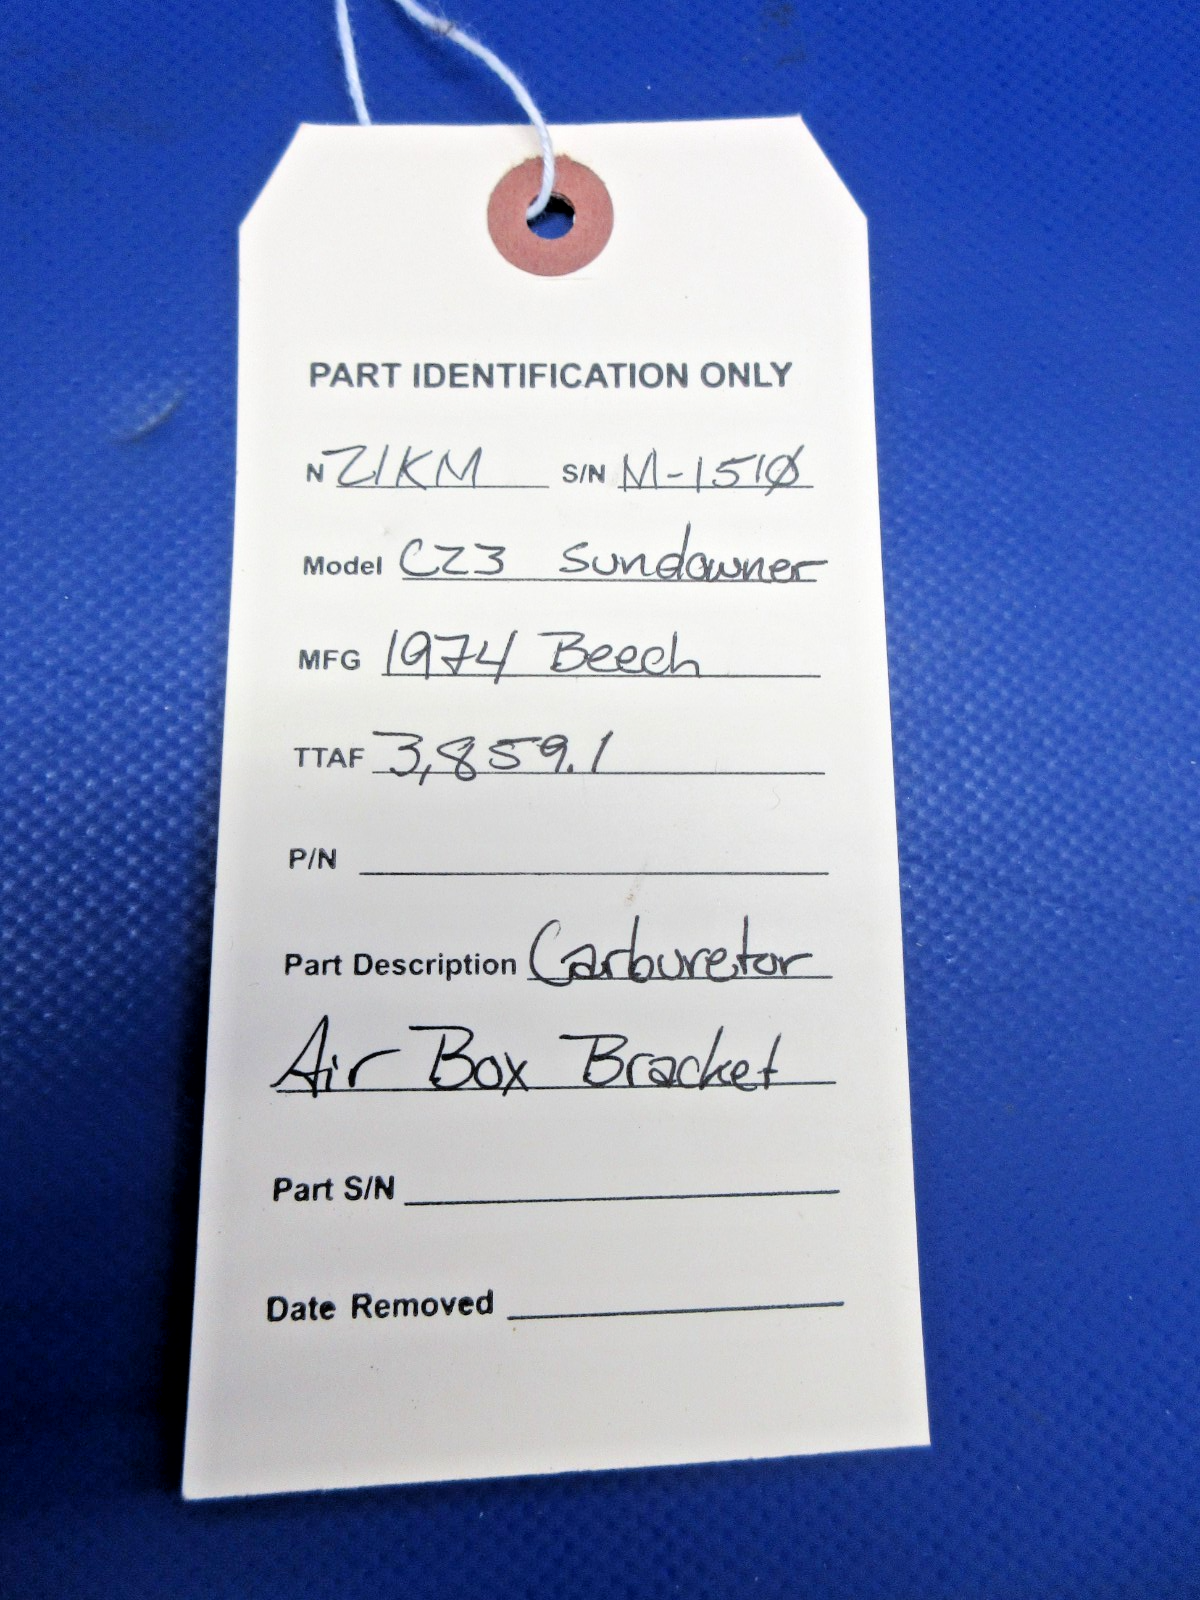 PART IDENTIFICATION ONLY
N 21KM S/N M-1510
Model C23 Sundowner
MFG 1974 Beech
TTAF 3,859.1
P/N
Part Description Carburetor
Air Box Bracket
Part S/N
Date Removed